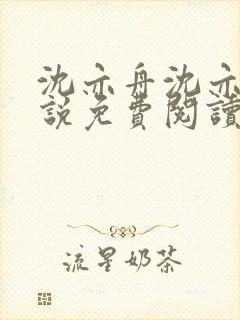 沈亦舟沈亦
說免費閱讀
流星奶茶